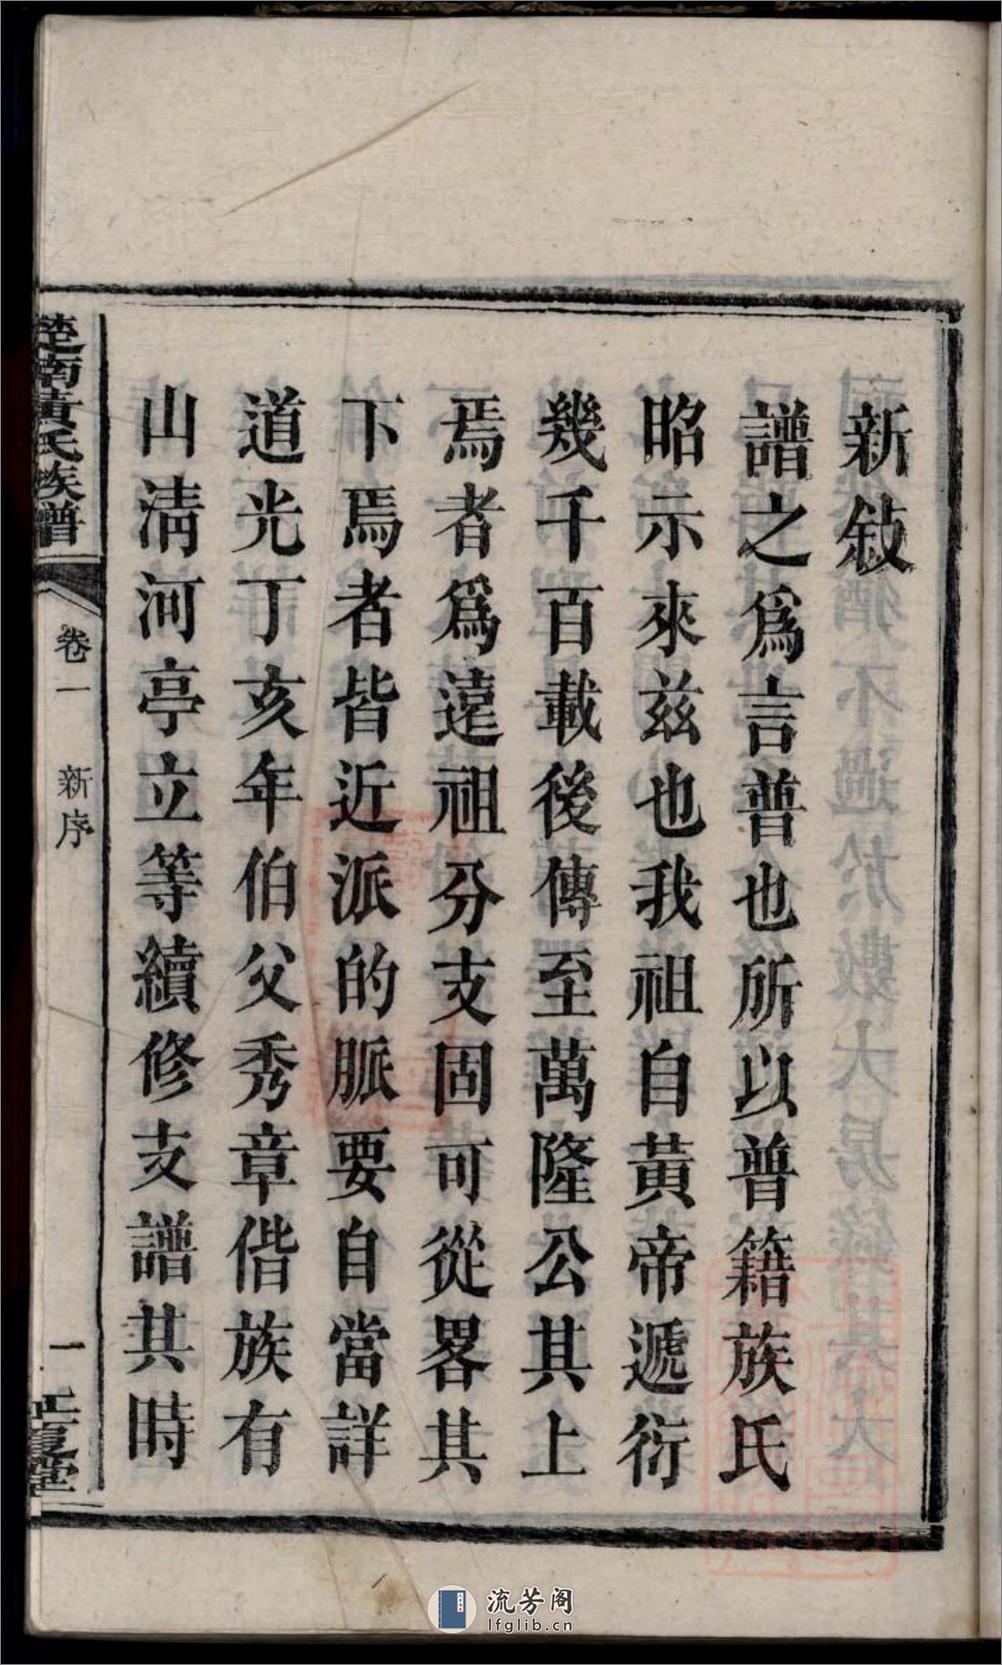 新敍
譜之爲言普也所以普籍族氏
昭示來兹也我祖自黃帝遞衍
幾千百載後傳至萬隆公其上
焉者爲遠祖分支固可從畧其
下焉者皆近派的脈要自當詳
道光丁亥年伯父秀章偕族有
山清河亭立等續修支譜其時
楚南黃氏族譜
卷一 新序
一
江夏堂
流芳阁
lfglib.cn